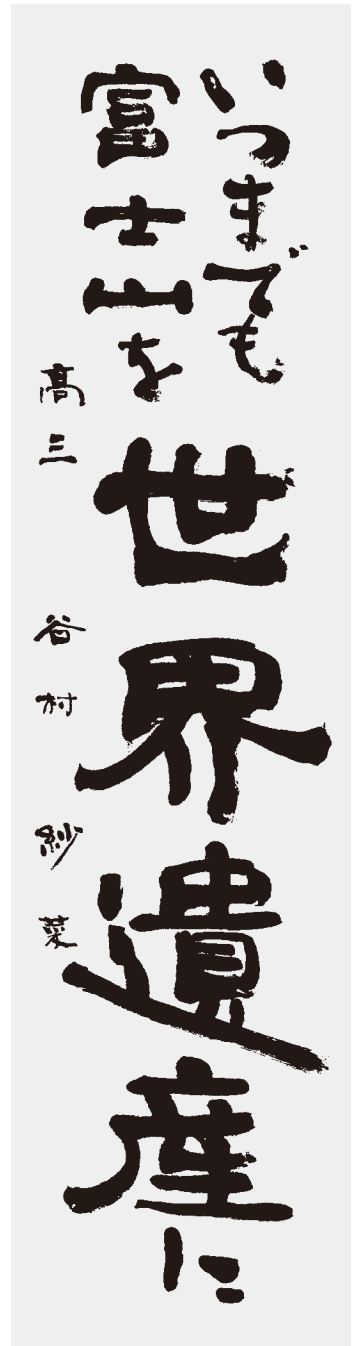 いつまでも
富士山を
世界遺産に
高三 谷村 紗菜